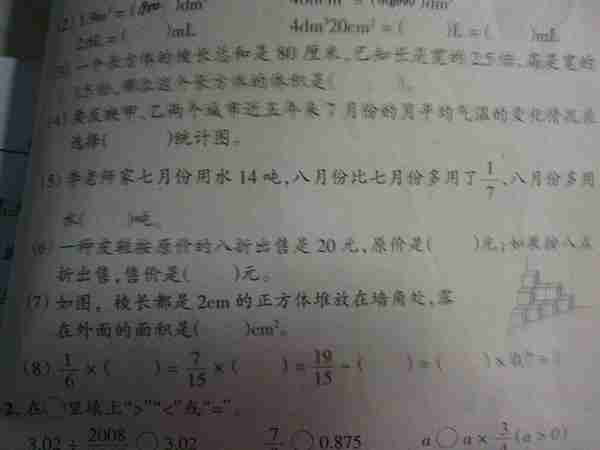 (2) 1.9m³=( )dm³
4dm³20cm³=( )L=( )mL
(3) 一个长方体的棱长总和是80厘米,已知长是宽的2.5倍,高是宽的
1.5倍,那么这个长方体的体积是( )。
(4) 要反映甲、乙两个城市近五年来7月份的月平均气温的变化情况应
选择( )统计图。
(5) 李老师家七月份用水14吨,八月份比七月份多用了1/7,八月份多用
水( )吨。
(6) 一种皮鞋按原价的八折出售是20元,原价是( )元;如果按八五
折出售,售价是( )元。
(7) 如图,棱长都是2cm的正方体堆放在墙角处,露
在外面的面积是( )cm²。
(8) 1/6×( )=7/15×( )=19/15-( )=( )×
2. 在○里填上“>”“<”或“=”。
3.02÷2008 ○3.02 7 ○0.875 a○a×3 (a>0)